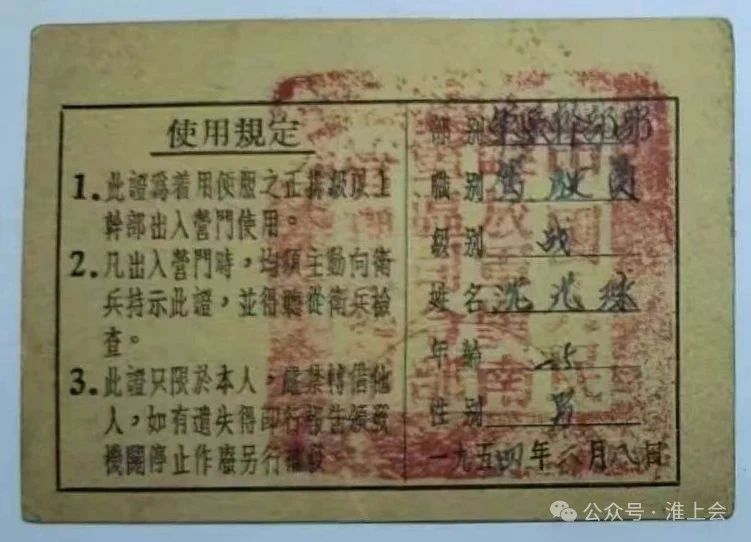 使用規定
1. 此證爲着用便服之正排級以上
幹部出入營門使用。
2. 凡出入營門時，均須主動向衛
兵持示此證，並得聽從衛兵檢
查。
3. 此證只限於本人，嚴禁轉借他
人，如有遺失得即行報告頒發
機關停止作廢另行補發
部别 軍區幹部部
職别 駕駛員
級别 战
姓名 沈兆
年齡 25
性别 男
一九五四年 月八日
公众号 · 淮上会